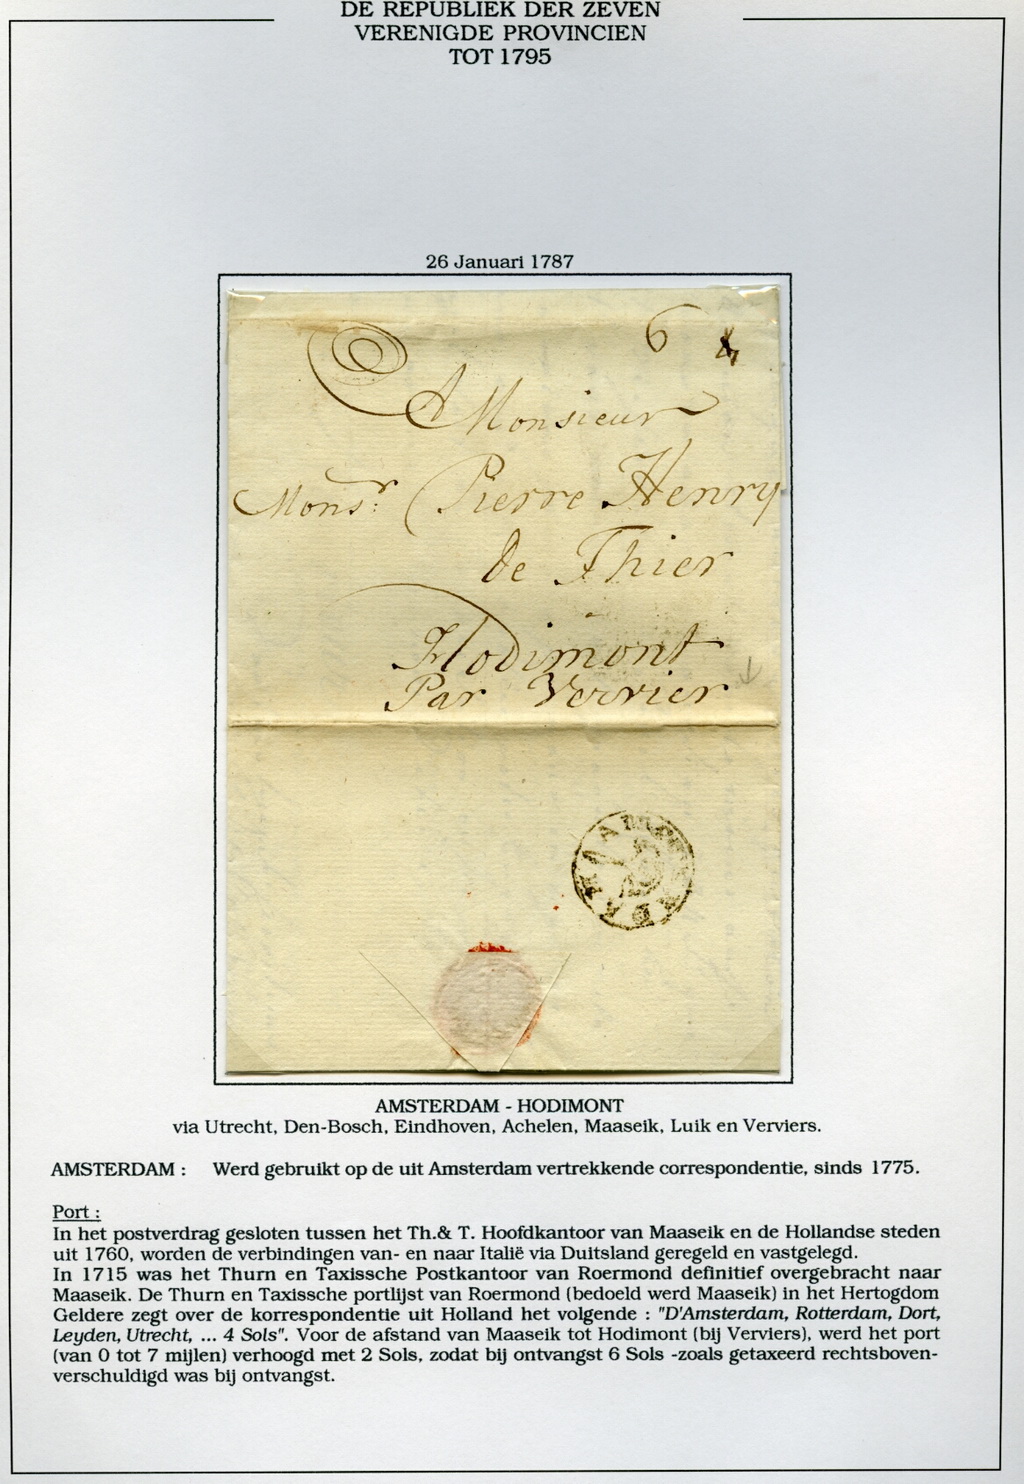 DE REPUBLIEK DER ZEVEN
VERENIGDE PROVINCIEN
TOT 1795
26 Januari 1787
6
A Monsieur
Monsr: Pierre Henry
de Thier
Hodimont
Par Vervier
AMSTERDAM
AMSTERDAM - HODIMONT
via Utrecht, Den-Bosch, Eindhoven, Achelen, Maaseik, Luik en Verviers.
AMSTERDAM : Werd gebruikt op de uit Amsterdam vertrekkende correspondentie, sinds 1775.
Port :
In het postverdrag gesloten tussen het Th.& T. Hoofdkantoor van Maaseik en de Hollandse steden
uit 1760, worden de verbindingen van- en naar Italië via Duitsland geregeld en vastgelegd.
In 1715 was het Thurn en Taxissche Postkantoor van Roermond definitief overgebracht naar
Maaseik. De Thurn en Taxissche portlijst van Roermond (bedoeld werd Maaseik) in het Hertogdom
Geldere zegt over de korrespondentie uit Holland het volgende : "D'Amsterdam, Rotterdam, Dort,
Leyden, Utrecht, ... 4 Sols". Voor de afstand van Maaseik tot Hodimont (bij Verviers), werd het port
(van 0 tot 7 mijlen) verhoogd met 2 Sols, zodat bij ontvangst 6 Sols -zoals getaxeerd rechtsboven-
verschuldigd was bij ontvangst.